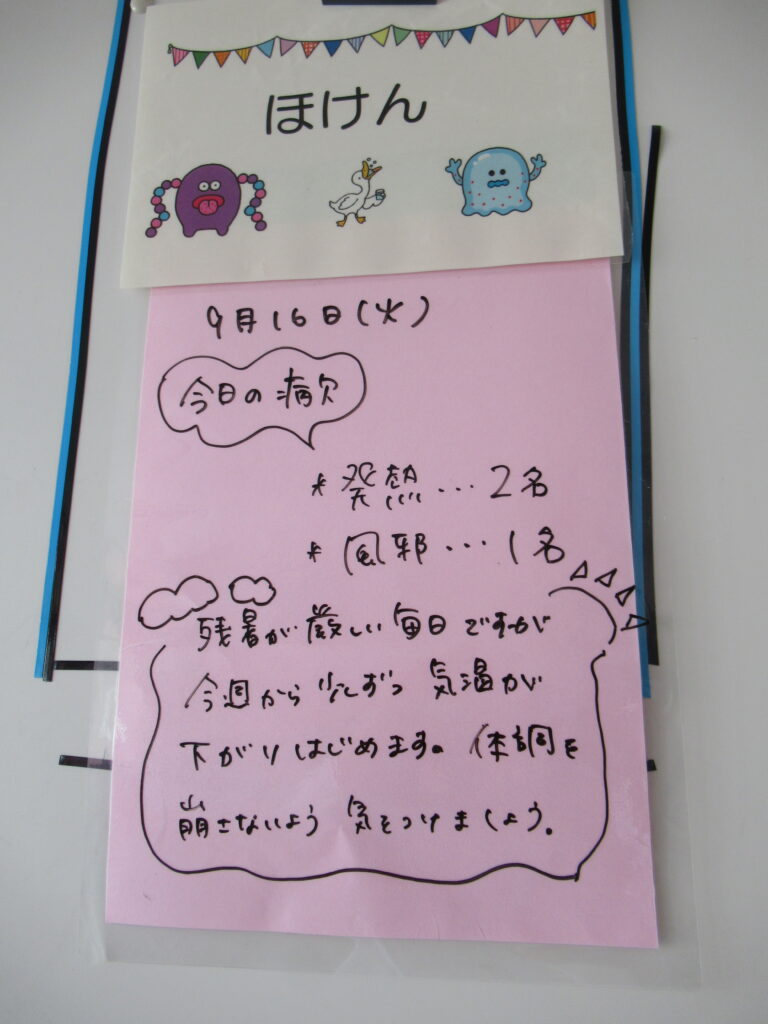 ほけん
9月16日(火)
今日の病欠
* 発熱…2名
* 風邪…1名
残暑が厳しい毎日ですが
今週から少しずつ 気温が
下がりはじめます。体調を
崩さないよう 気をつけましょう。